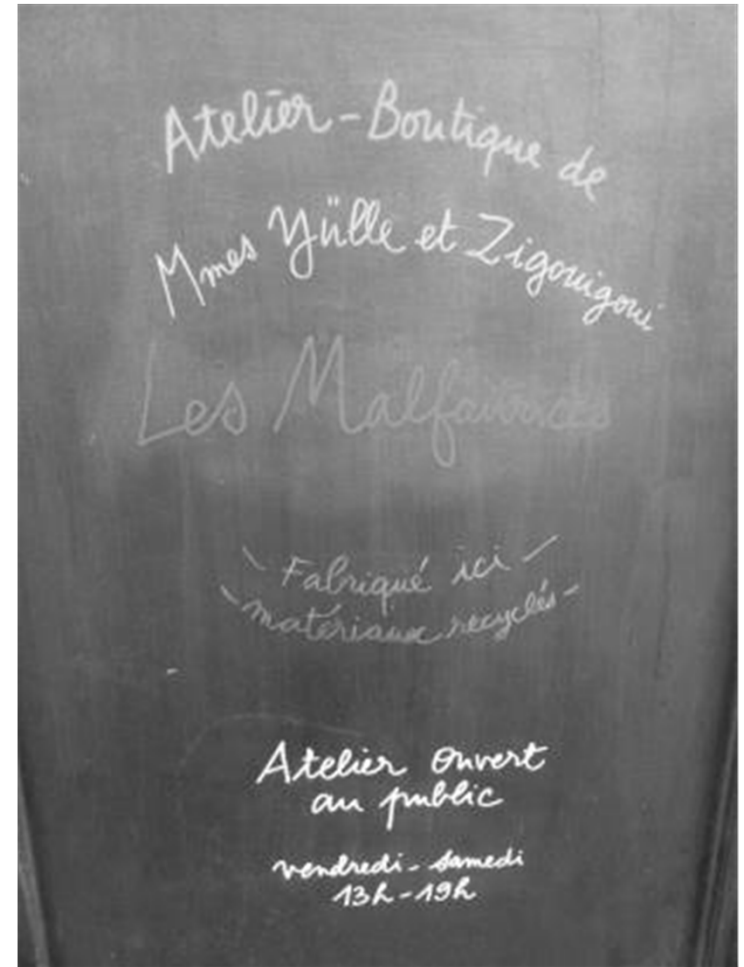 Atelier-Boutique de
Mmes Yülle et Zigouigoui
Les
Fabriqué ici
matériaux recyclés
Atelier Ouvert
au public
vendredi - samedi
13h-19h